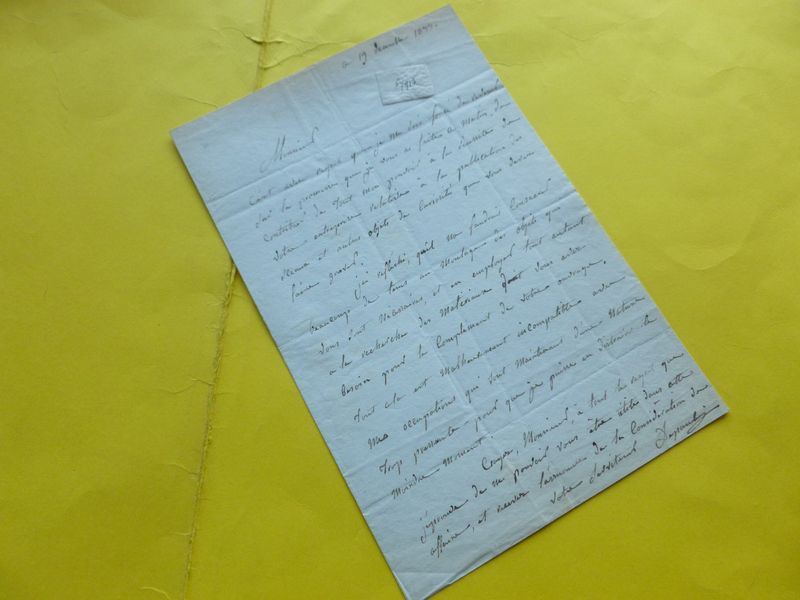 19 1844.
Monsieur
C'est avec regret que je me vois forcé de
de la promesse que je vous ai faite ce matin, de
contribuer de tout mon pouvoir à la réussite de
votre entreprise relative à la publication de
et autres objets de curiosité que vous devez
faire graver.
J'ai réfléchi, qu'il me faudroit consacrer
beaucoup de tems au montage des objets qui
vous sont nécessaires, et en employer tout autant
à la recherche des matériaux dont vous avez
besoin pour le complément de votre ouvrage.
Tout cela est malheureusement incompatible avec
mes occupations qui sont maintenant d'une nature
trop pressante pour que je puisse en distraire le
moindre moment.
Croyez, Monsieur, à tout le regret que
j'éprouve de ne pouvoir vous être utile dans cette
affaire, et recevez l'assurance de la considération de
votre serviteur